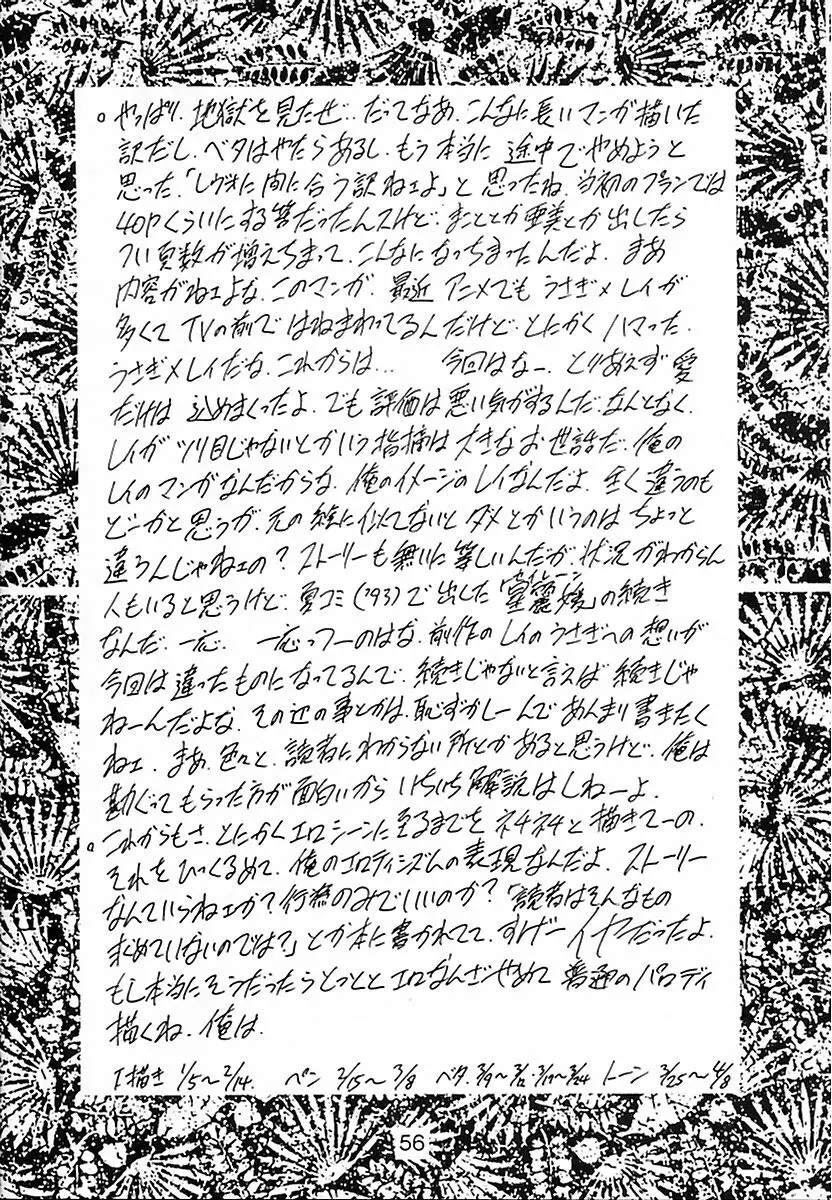 。やっぱり、地獄を見たぜ…だってなあ、こんなに長いマンガ描いた
訳だし、ベタはやたらあるし、もう本当に途中でやめようと
思った。「レヴォに間に合う訳ねェよ」と思ったね。当初のプランでは
40Pくらいにする筈だったんスけど、まこととか亜美とか出したら
つい頁数が増えちまって、こんなになっちまったんだよ。まあ
内容がねェよな、このマンガ。最近アニメでもうさぎ×レイが
多くてTVの前ではねまわってるんだけど、とにかくハマった。
うさぎ×レイだな、これからは… 今回はなー、とりあえず愛
だけは込めまくったよ。でも評価は悪い気がするんだ、なんとなく。
レイがツリ目じゃないとかいう指摘は大きなお世話だ。俺の
レイのマンガなんだからな。俺のイメージのレイなんだよ。全く違うのも
どーかと思うが、元の絵に似てないとダメとかいうのはちょっと
違うんじゃねェの?ストーリーも無いに等しいんだが、状況がわからん
人もいると思うけど、夏コミ('93)で出した「麗媛」の続き
なんだ、一応。一応っつーのはな、前作のレイのうさぎへの想いが
今回は違ったものになってるんで、続きじゃないと言えば続きじゃ
ねーんだよな。その辺の事とかは、恥ずかしーんであんまり書きたく
ねェ。まあ、色々と、読者にわからない所とかあると思うけど、俺は
勘ぐってもらった方が面白いからいちいち解説はしねーよ。
。これからもさ、とにかくエロシーンに至るまでをネチネチと描きてーの。
それをひっくるめて、俺のエロティシズムの表現なんだよ。ストーリー
なんていらねェか?行為のみでいいのか?「読者はそんなもの
求めていないのでは?」とか本に書かれてて、すげーイヤだったよ。
もし本当にそうだったらとっとと エロなんざやめて 普通のパロディ
描くね、俺は。
下描き 1/5~2/14. ペン 2/15~3/8 ベタ. 3/9~3/12・3/17~3/24 トーン 3/25~4/8
56